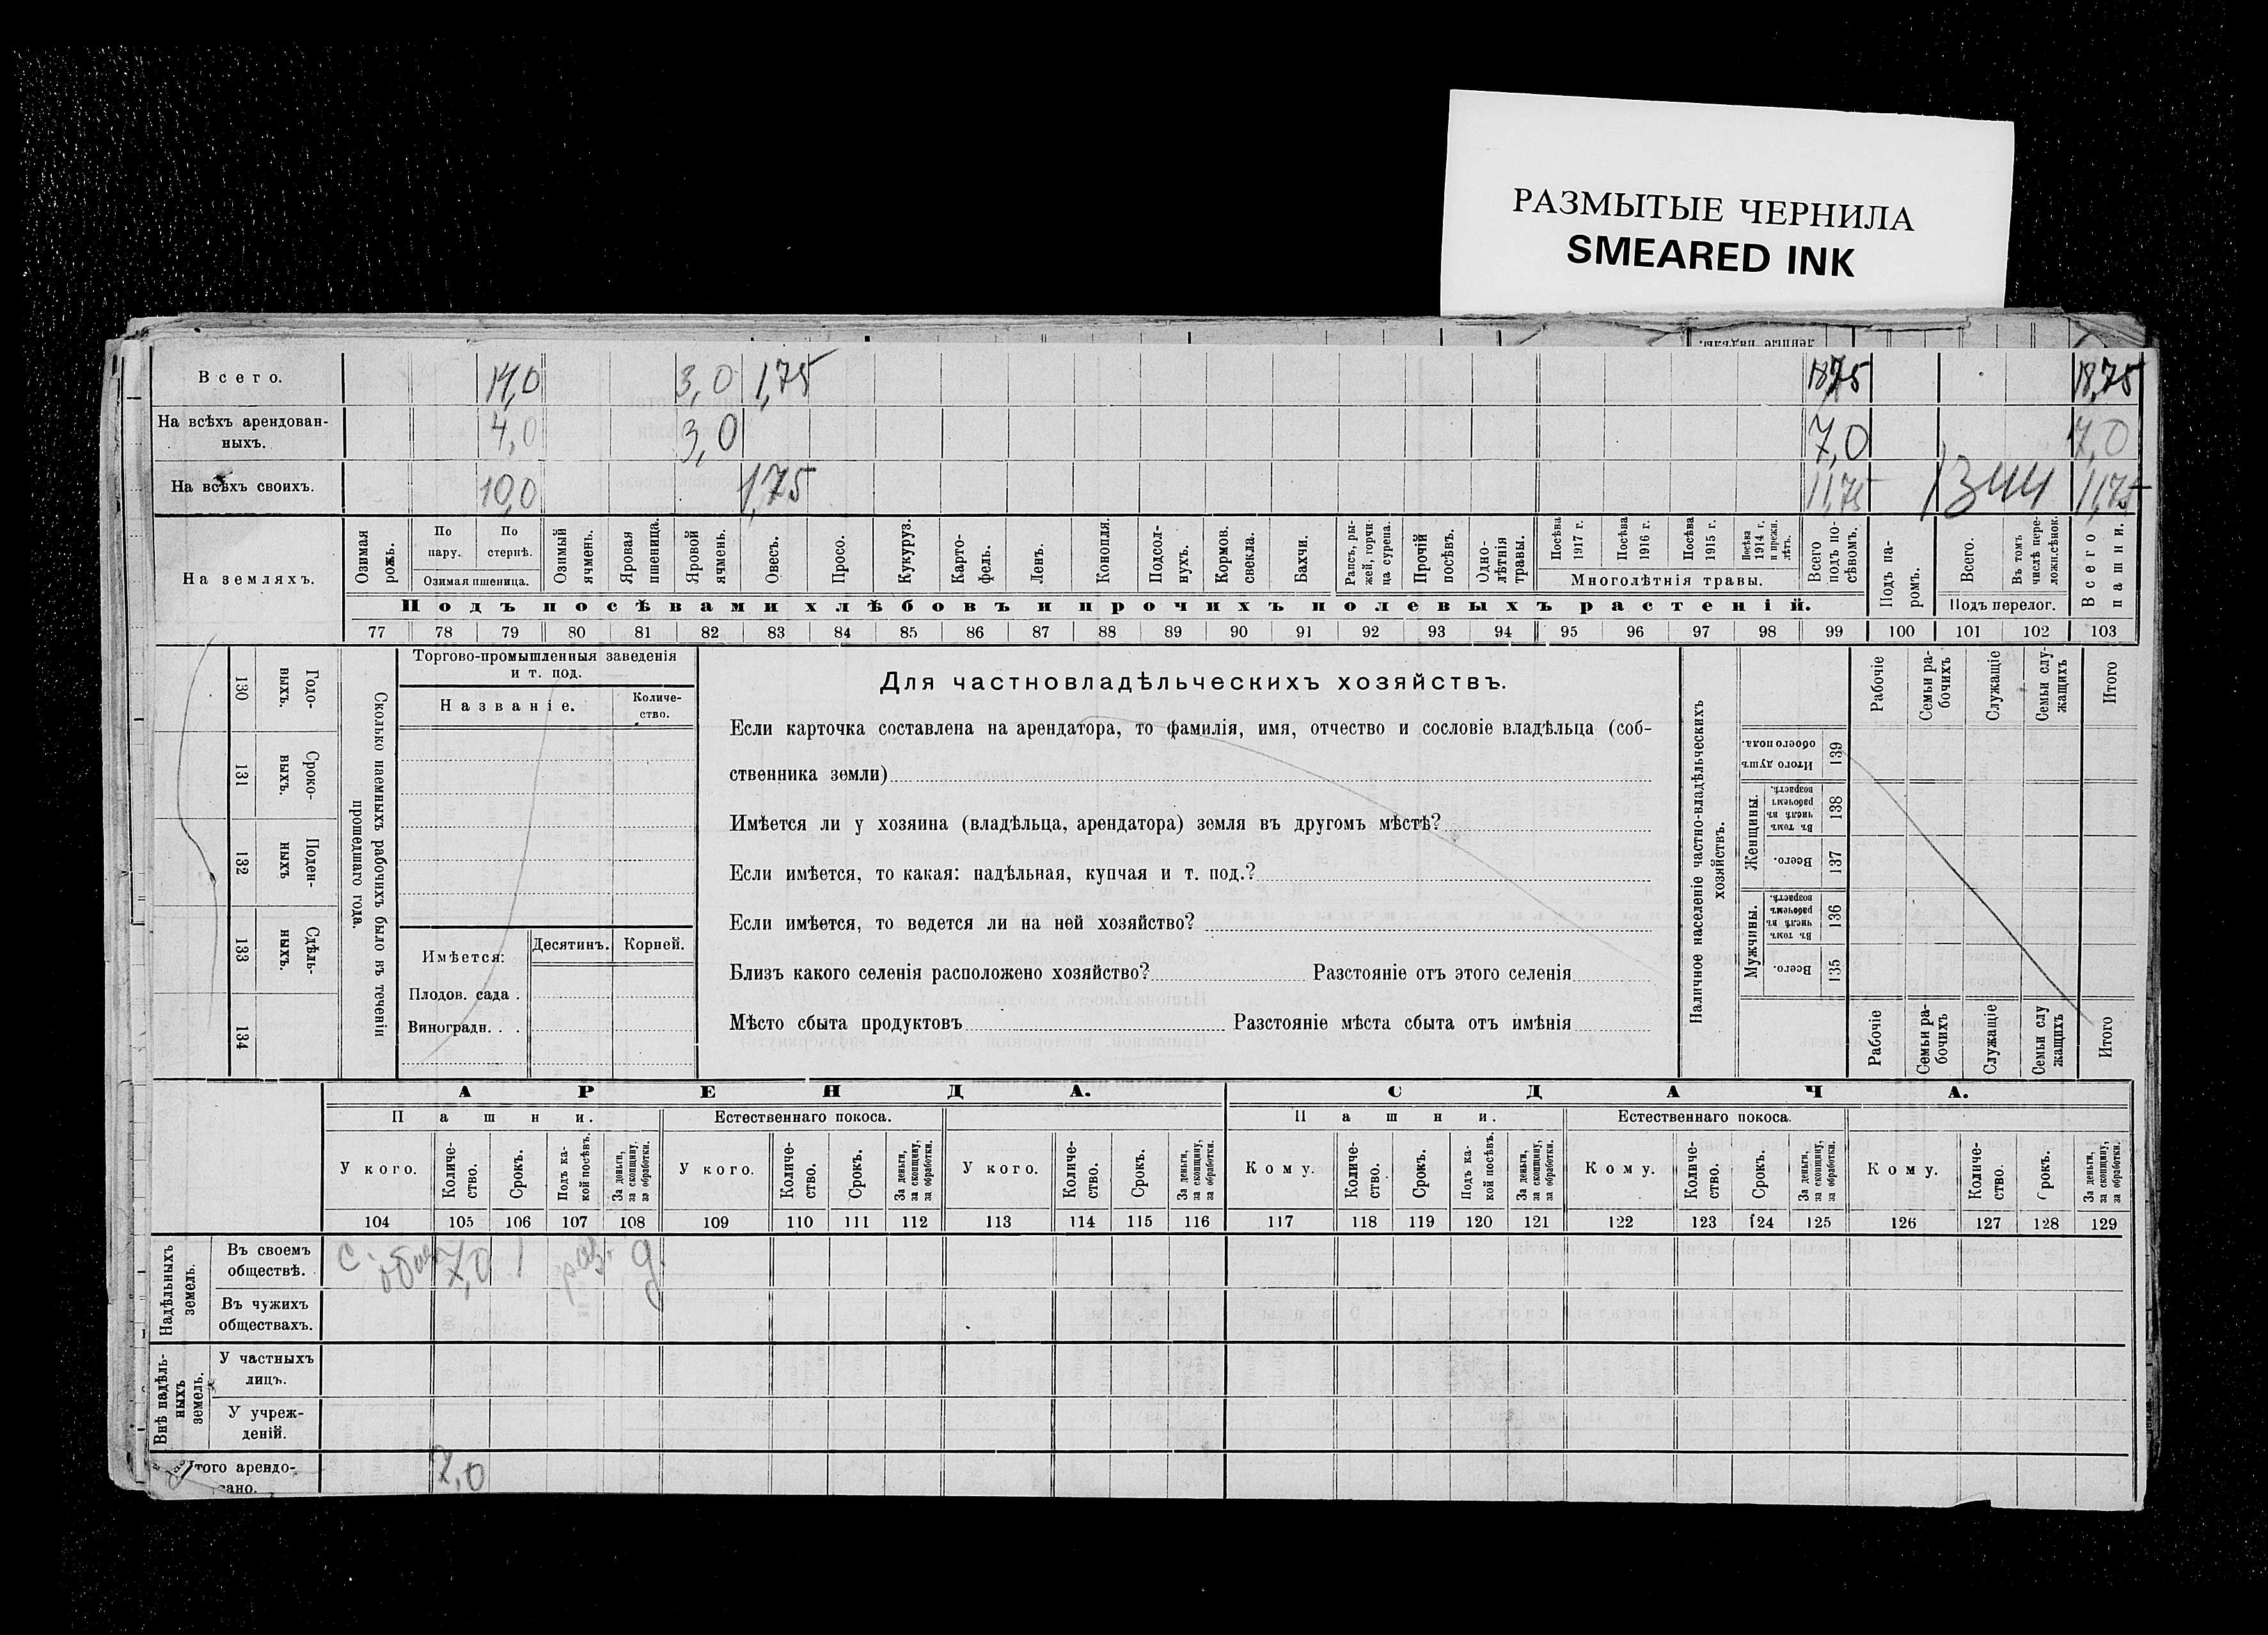 РАЗМЫТЫЕ ЧЕРНИЛА
SMEARED INK
ленные надѣлы.
Всего. 14,0 3,0 1,75 18,75 18,75
На всѣхъ арендован-
ныхъ. 4,0 3,0 7,0 7,0
На всѣхъ своихъ. 10,0 1,75 11,75 1344 11,75
На земляхъ.
Озимая рожь.
По пару.
По стернѣ.
Озимая пшеница.
Озимый ячмень.
Яровая пшеница.
Яровой ячмень.
Овесъ.
Просо.
Кукуруз.
Карто-
фель.
Ленъ.
Конопля.
Подсол-
нухъ.
Кормов. свекла.
Бахчи.
Рапсъ, ры-
жей, горчи-
ца сурепа.
Прочій посѣвъ.
Одно-
лѣтнія травы.
Посѣва 1917 г.
Посѣва 1916 г.
Посѣва 1915 г.
Посѣва 1914 г. и прежн. лѣтъ.
Многолѣтнія травы.
Всего подъ по-
сѣвомъ.
Подъ па-
ромъ.
Всего.
Въ томъ числѣ пере-
ложн. сѣнок.
Подъ перелог.
Всего пашни.
Подъ посѣвами хлѣбовъ и прочихъ полевыхъ растеній.
77 78 79 80 81 82 83 84 85 86 87 88 89 90 91 92 93 94 95 96 97 98 99 100 101 102 103
130 Годо-
выхъ.
131 Сроко-
выхъ.
132 Поден-
ныхъ
133 Сдѣль-
ныхъ.
134
Сколько наемныхъ рабочихъ было въ теченіи
прошедшаго года.
Торгово-промышленныя заведенія
и т. под.
Названіе.
Количе-
ство.
Имѣется:
Десятинъ.
Корней.
Плодов. сада .
Виноградн. . .
Для частновладѣльческихъ хозяйствъ.
Если карточка составлена на арендатора, то фамилія, имя, отчество и сословіе владѣльца (соб-
ственника земли)
Имѣется ли у хозяина (владѣльца, арендатора) земля въ другомъ мѣстѣ?
Если имѣется, то какая: надѣльная, купчая и т. под.?
Если имѣется, то ведется ли на ней хозяйство?
Близъ какого селенія расположено хозяйство? Разстояніе отъ этого селенія
Мѣсто сбыта продуктовъ Разстояніе мѣста сбыта отъ имѣнія
Наличное населеніе частно-владѣльческихъ
хозяйствъ.
Рабочіе
Семьи ра-
бочихъ
Служащіе
Семьи слу-
жащихъ
Итого
Итого душъ обоего пола. 139
Женщины.
Въ томъ числѣ въ рабочемъ возрастѣ. 138
Всего. 137
Мужчины.
Въ томъ числѣ въ рабочемъ возрастѣ. 136
Всего. 135
Рабочіе
Семьи ра-
бочихъ
Служащіе
Семьи слу
жащихъ
Итого
АРЕНДА. СДАЧА.
Пашни. Естественнаго покоса. Пашни. Естественнаго покоса.
У кого.
Количе-
ство.
Срокъ.
Подъ ка-
кой посѣвъ.
За деньги,
за скопщину,
за обработки.
У кого.
Количе-
ство.
Срокъ.
За деньги,
за скопщину,
за обработки.
У кого.
Количе-
ство.
Срокъ.
За деньги,
за скопщину,
за обработки.
Кому.
Количе-
ство.
Срокъ.
Подъ ка-
кой посѣвъ.
За деньги,
за скопщину,
за обработки.
Кому.
Количе-
ство.
Срокъ.
За деньги,
за скопщину,
за обработки.
Кому.
Количе-
ство.
рокъ.
За деньги,
за скопщину,
за обработки.
104 105 106 107 108 109 110 111 112 113 114 115 116 117 118 119 120 121 122 123 124 125 126 127 128 129
Надѣльныхъ
земель.
Въ своемъ
обществѣ. 7,0 1 д.
Въ чужихъ
обществахъ.
Внѣ надѣль-
ныхъ
земель.
У частныхъ
лицъ.
У учреж-
деній.
Итого арендо-
вано. 7,0